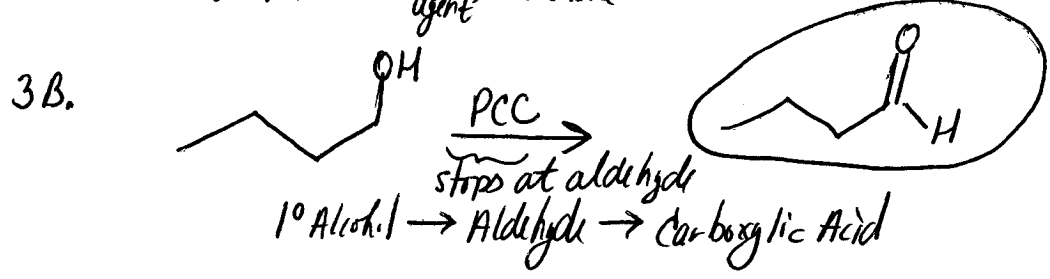 agent
OH
O
3B.
PCC
H
stops at aldehyde
1° Alcohol → Aldehyde → Carboxylic Acid